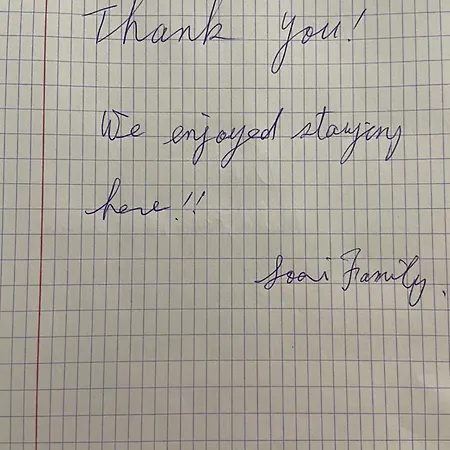 Thank you!
We enjoyed staying
here!!
Family.